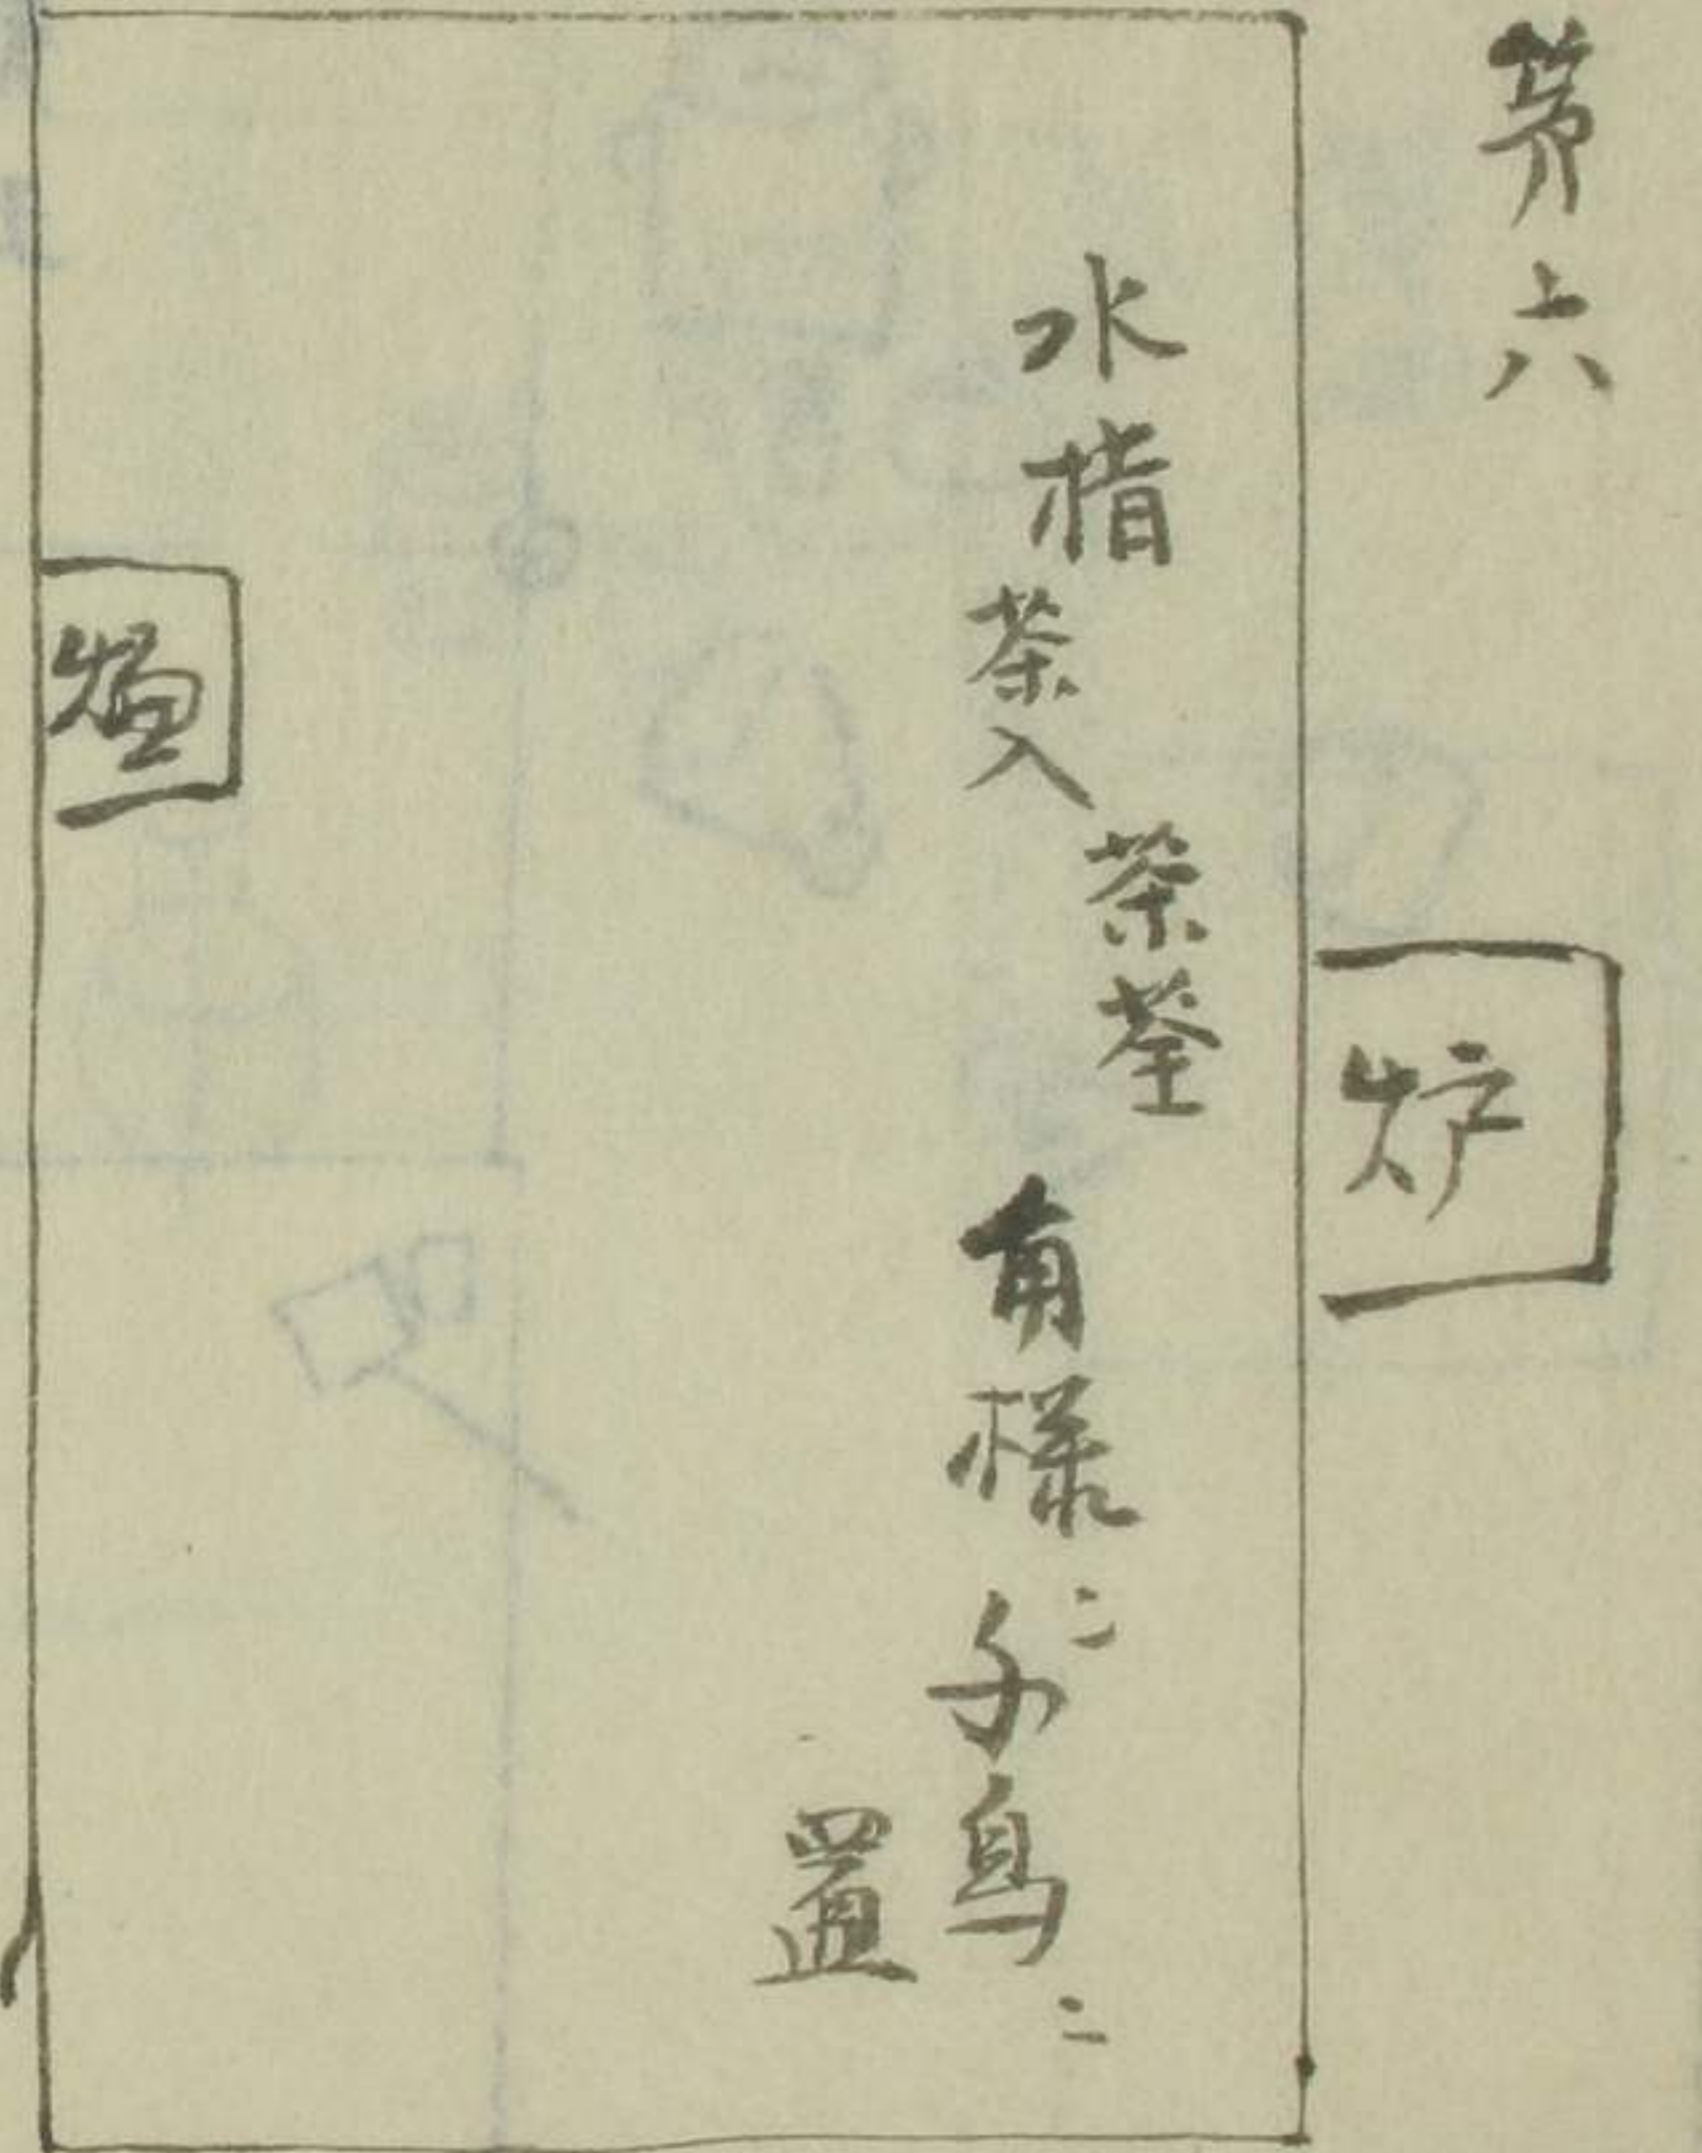 第六
炉
水指
茶入
茶荃
角様ニ千鳥ニ
置